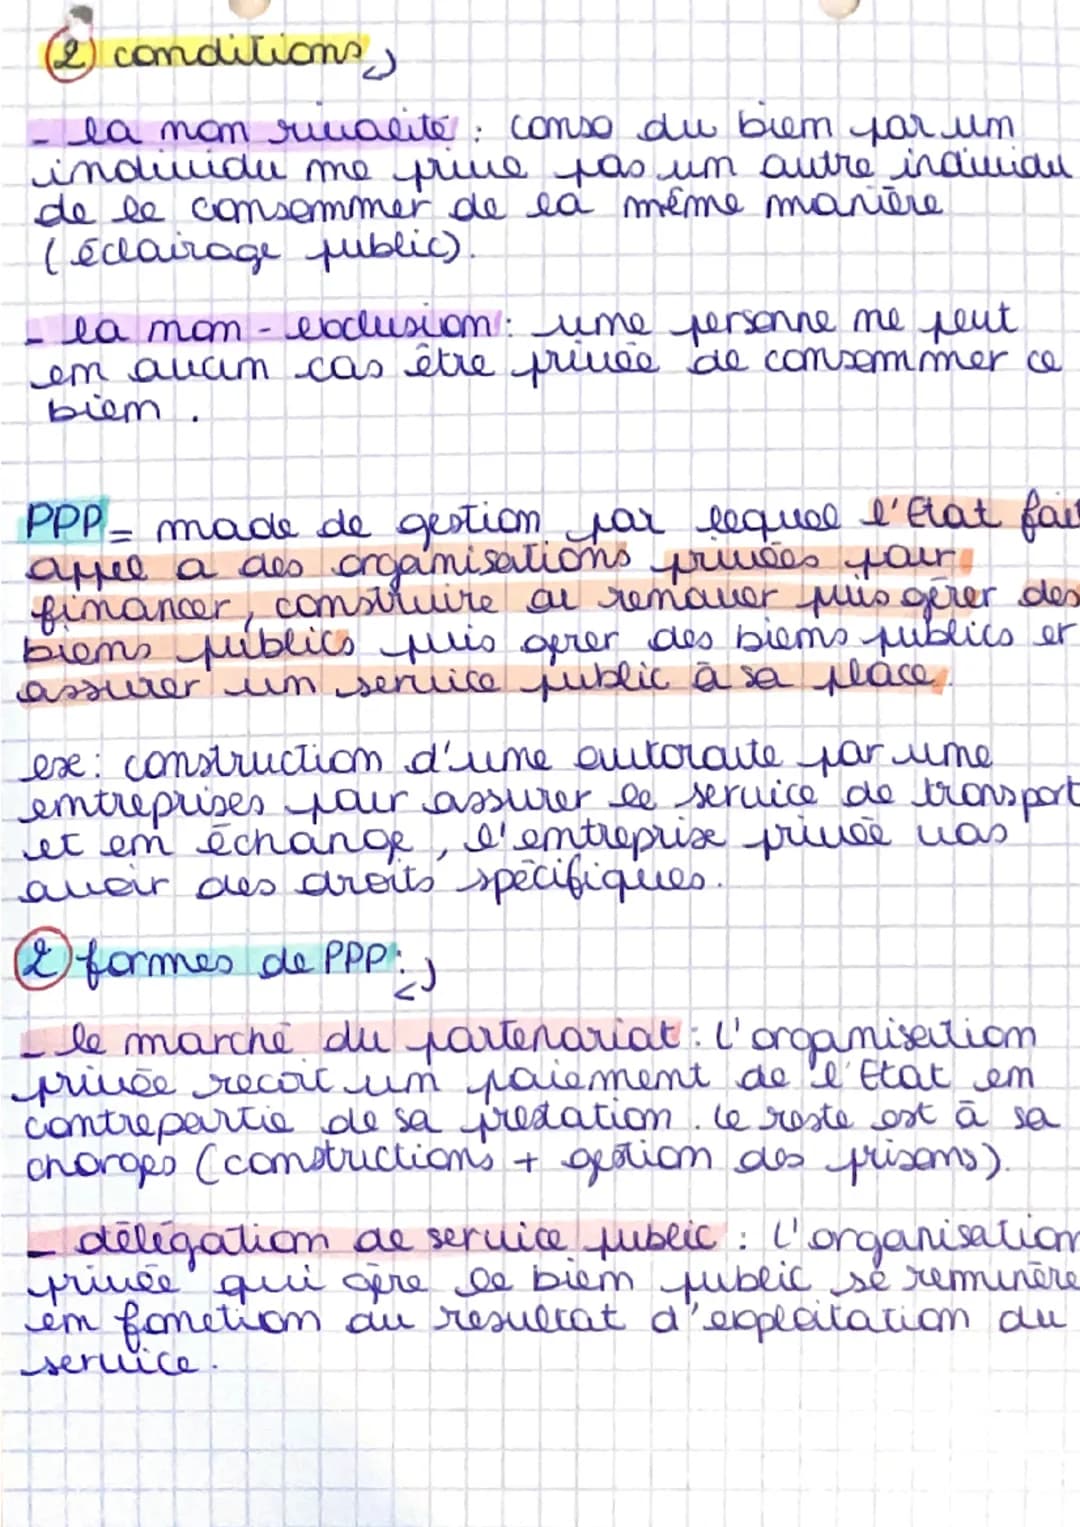 2 conditions
- la non rivalité : conso du bien par un
individu ne prive pas un autre individu
de le consommer de la même manière
(éclairage public).
- la non-exclusion : une personne ne peut
en aucun cas être privée de consommer ce
bien.
PPP = mode de gestion par lequel l'Etat fait
appel a des organisations privées pour
financer, construire ou renover puis gérer des
biens publics puis gerer des biens publics et
assurer un service public à sa place.
ex: construction d'une autoroute par une
entreprises pour assurer le service de transport
et en échange, l'entreprise privée vas
avoir des droits spécifiques.
2 formes de PPP:
- le marché du partenariat : l'organisation
privée recoit un paiement de l'Etat en
contrepartie de sa prestation. le reste est à sa
charges (constructions + gestion des prisons).
- délégation de service public : l'organisation
privée qui gère le bien public se remunère
en fonction du resultat d'exploitation du
service.